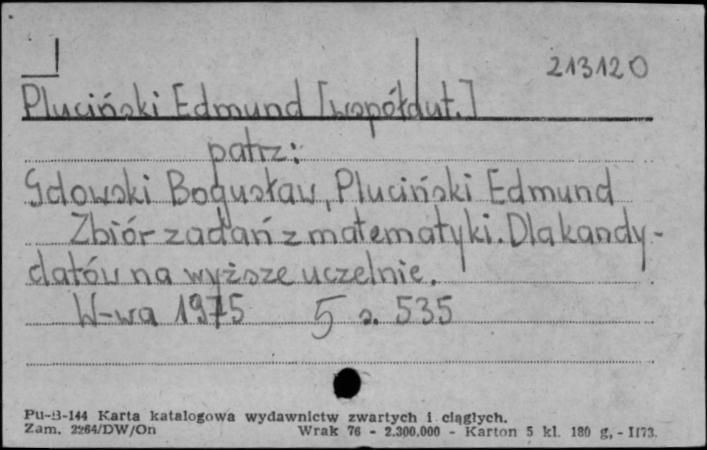 213120
Pluciński Edmund [współaut.]
patrz:
Gdowski Bogusław, Pluciński Edmund
Zbiór zadań z matematyki. Dla kandy-
datów na wyższe uczelnie.
W-wa 1975 5 s. 535
Pu-B-144 Karta katalogowa wydawnictw zwartych i ciągłych.
Zam. 2264/DW/On Wrak 76 - 2.300.000 - Karton 5 kl. 180 g, - II73.